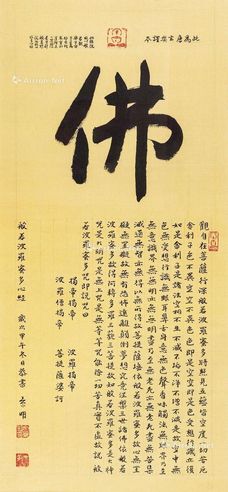 此為唐玄奘譯本
佛
觀自在菩薩行深般若波羅蜜多時照見五蘊皆空度一切苦厄
舍利子色不異空空不異色色即是空空即是色受想行識亦復
如是舍利子是諸法空相不生不滅不垢不淨不增不減是故空中無
色無受想行識無眼耳鼻舌身意無色聲香味觸法無眼界乃至
無意識界無無明亦無無明盡乃至無老死亦無老死盡無苦集
滅道無智亦無得以無所得故菩提薩埵依般若波羅蜜多故心無罣
礙無罣礙故無有恐怖遠離顛倒夢想究竟涅槃三世諸佛依般若
波羅蜜多故得阿耨多羅三藐三菩提故知般若波羅蜜多是大神
咒是大明咒是無上咒是無等等咒能除一切苦真實不虛故說般
若波羅蜜多咒即說咒曰
揭帝揭帝 波羅揭帝
波羅僧揭帝 菩提薩婆訶
般若波羅蜜多心經 歲次甲午冬日恭書 明